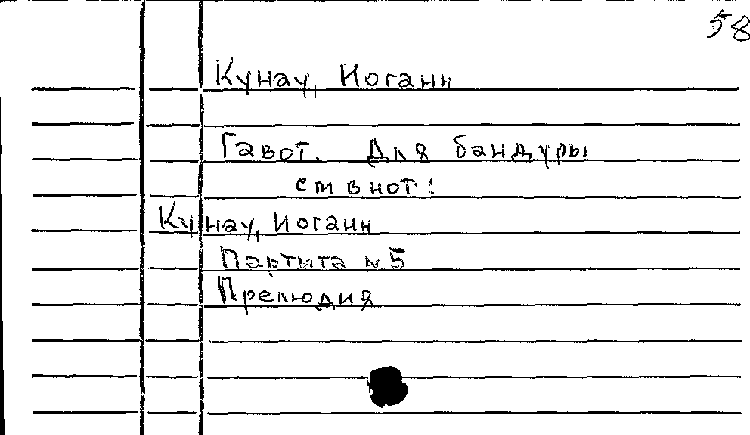 58
Кунау, Иоганн
Гавот. Для бандуры
см в нот:
Кунау, Иоганн
Партита №5
Прелюдия